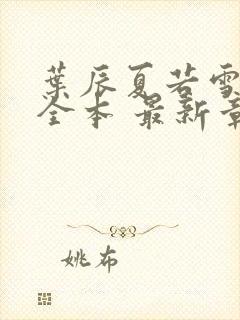 葉辰夏若雪
全本 最新章
姚布